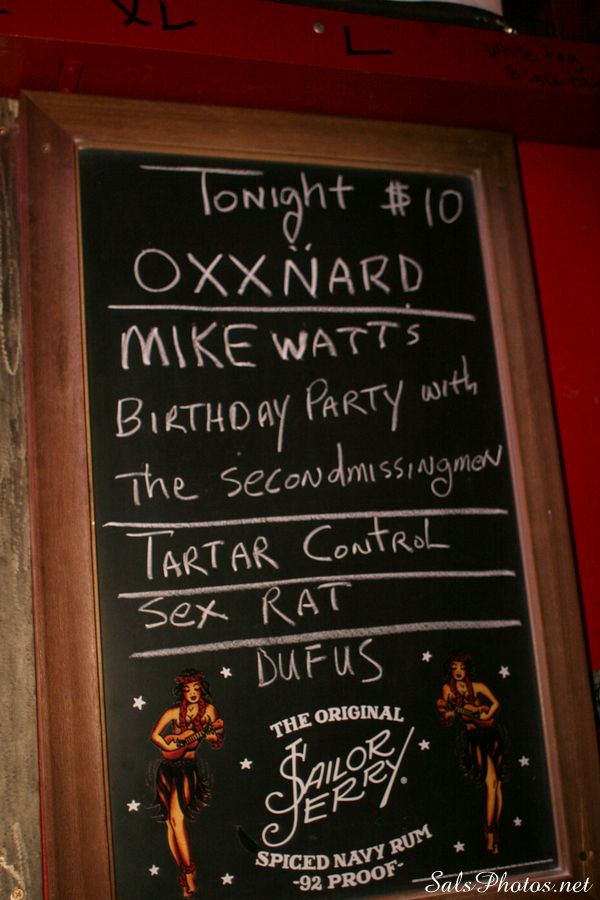 XL
L
Tonight $10
OXXN̈ARD
MIKE WATT'S
BIRTHDAY PARTY with
The Secondmissingmen
TARTAR CONTROL
Sex RAT
DUFUS
THE ORIGINAL
SAILOR
JERRY
SPICED NAVY RUM
-92 PROOF-
SalsPhotos.net